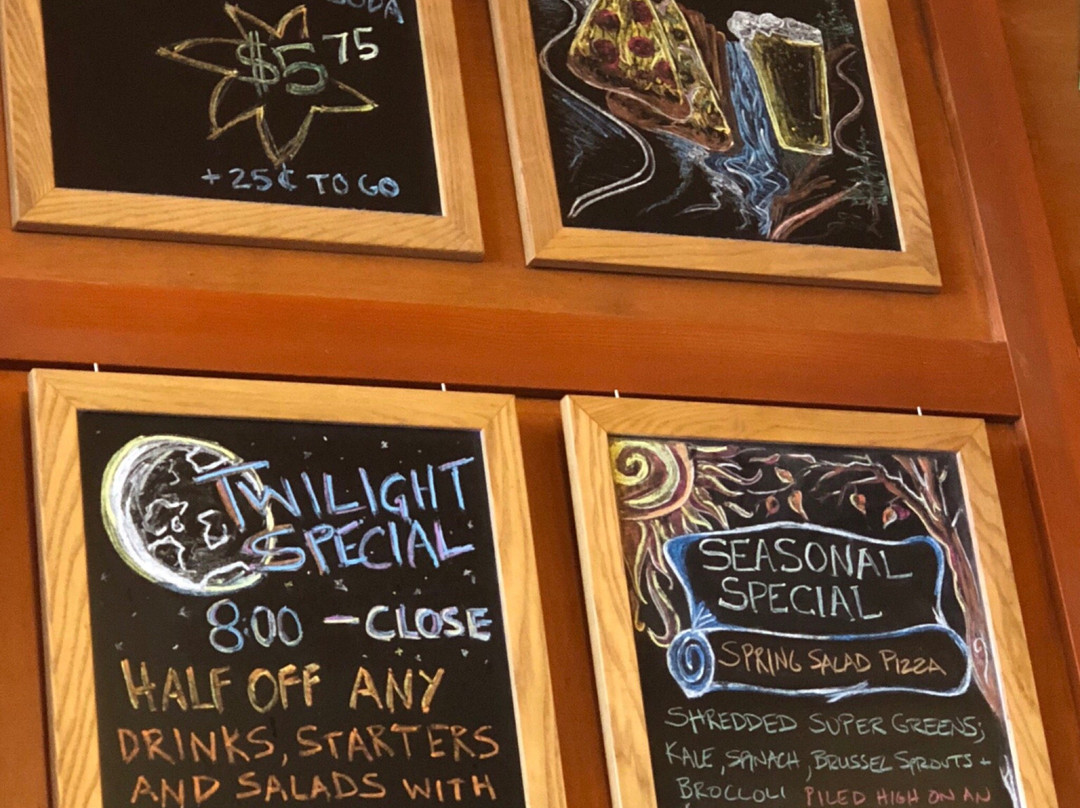 SODA
$5 75
+25¢ TO GO
TWILIGHT
SPECIAL
8:00 – CLOSE
HALF OFF ANY
DRINKS, STARTERS
AND SALADS WITH
SEASONAL
SPECIAL
SPRING SALAD PIZZA
SHREDDED SUPER GREENS;
KALE, SPINACH, BRUSSEL SPROUTS +
BROCCLOLI PILED HIGH ON AN